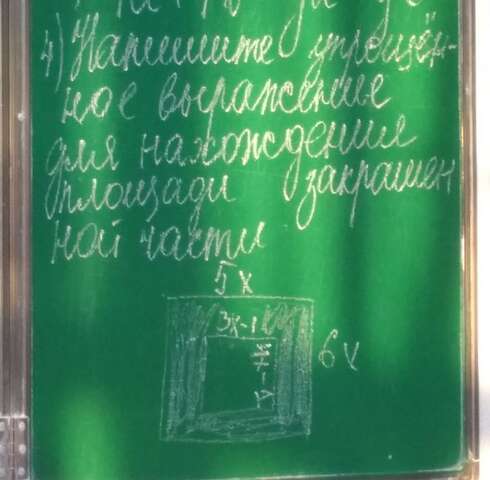 4) Напишите упрощён-
ное выражение
для нахождения
площади закрашен
ной части
5x
3x-1
6x